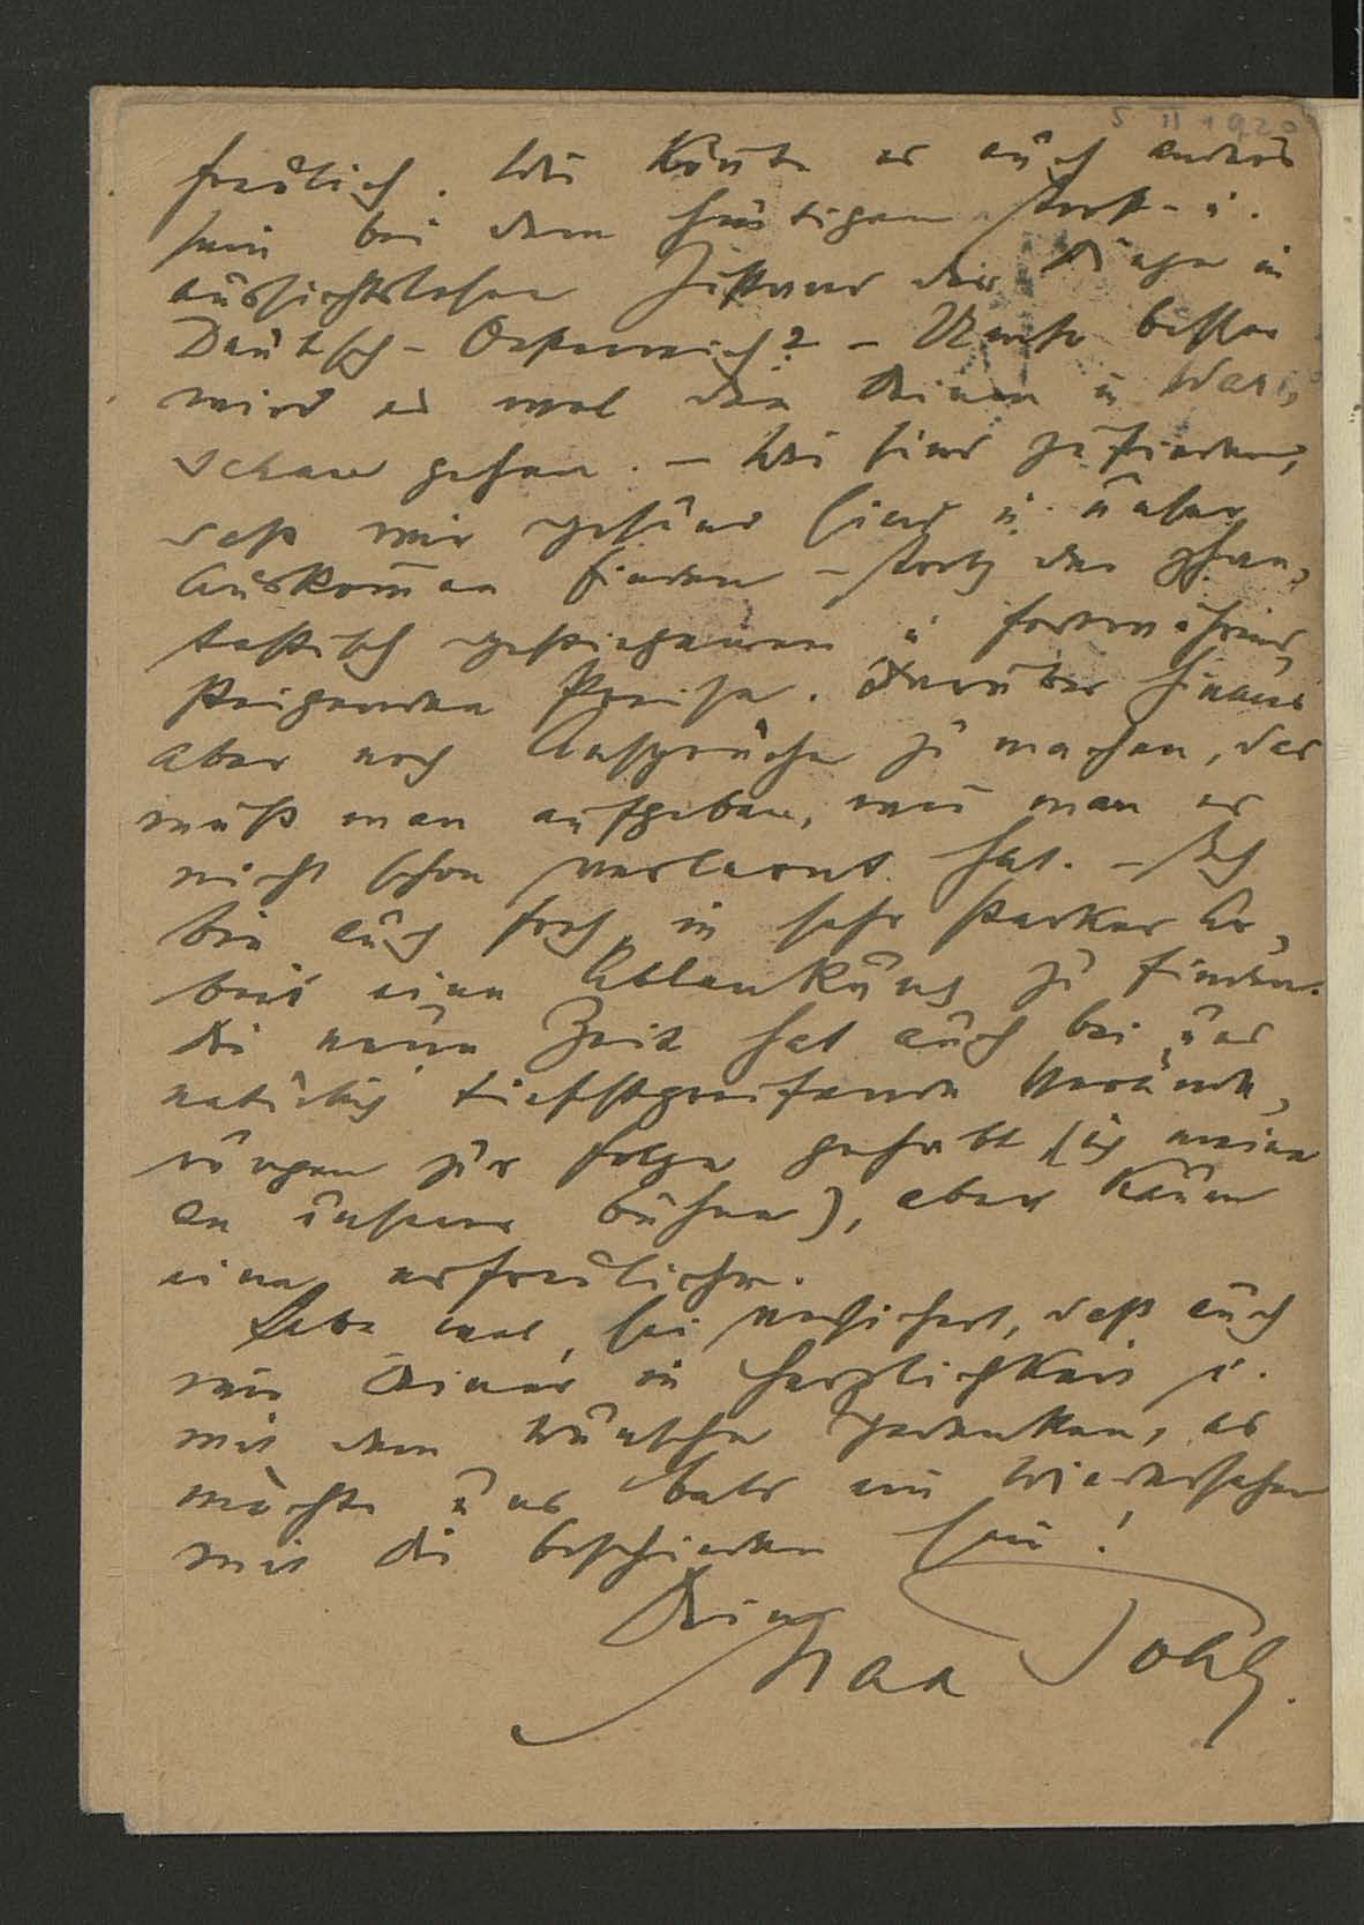 5 II 1920
freulich. Wie könnte es auch anders
sein bei dem heutigen trost- u.
aussichtslosen Zustand der Dinge in
Deutsch-Oesterreich? – Umso besser
wird es wol den Deinen in War-
schau gehen. – Wir sind zufrieden,
daß wir gesund sind u. unser
Auskom̄en finden – trotz der phan-
tastisch gestiegenen u fortwährend
steigenden Preise. Darüber hinaus
aber noch Ansprüche zu machen, das
muß man aufgeben, wen̄ man es
nicht schon verlernt hat. – Ich
bin auch froh, in sehr starker Ar-
beit eine Ablenkung zu finden.
Die neue Zeit hat auch bei uns
natürlich tiefstgreifende Verände-
rungen zur Folge gehabt (ich meine
an unserer Bühne), aber kaum
eine erfreuliche.
Lebe wol, sei versichert, daß auch
wir Deiner in Herzlichkeit u.
mit dem Wunsche gedenken, es
möchte uns bald ein Wiedersehen
mit Dir beschieden sein!
Dein
Max Pohl.